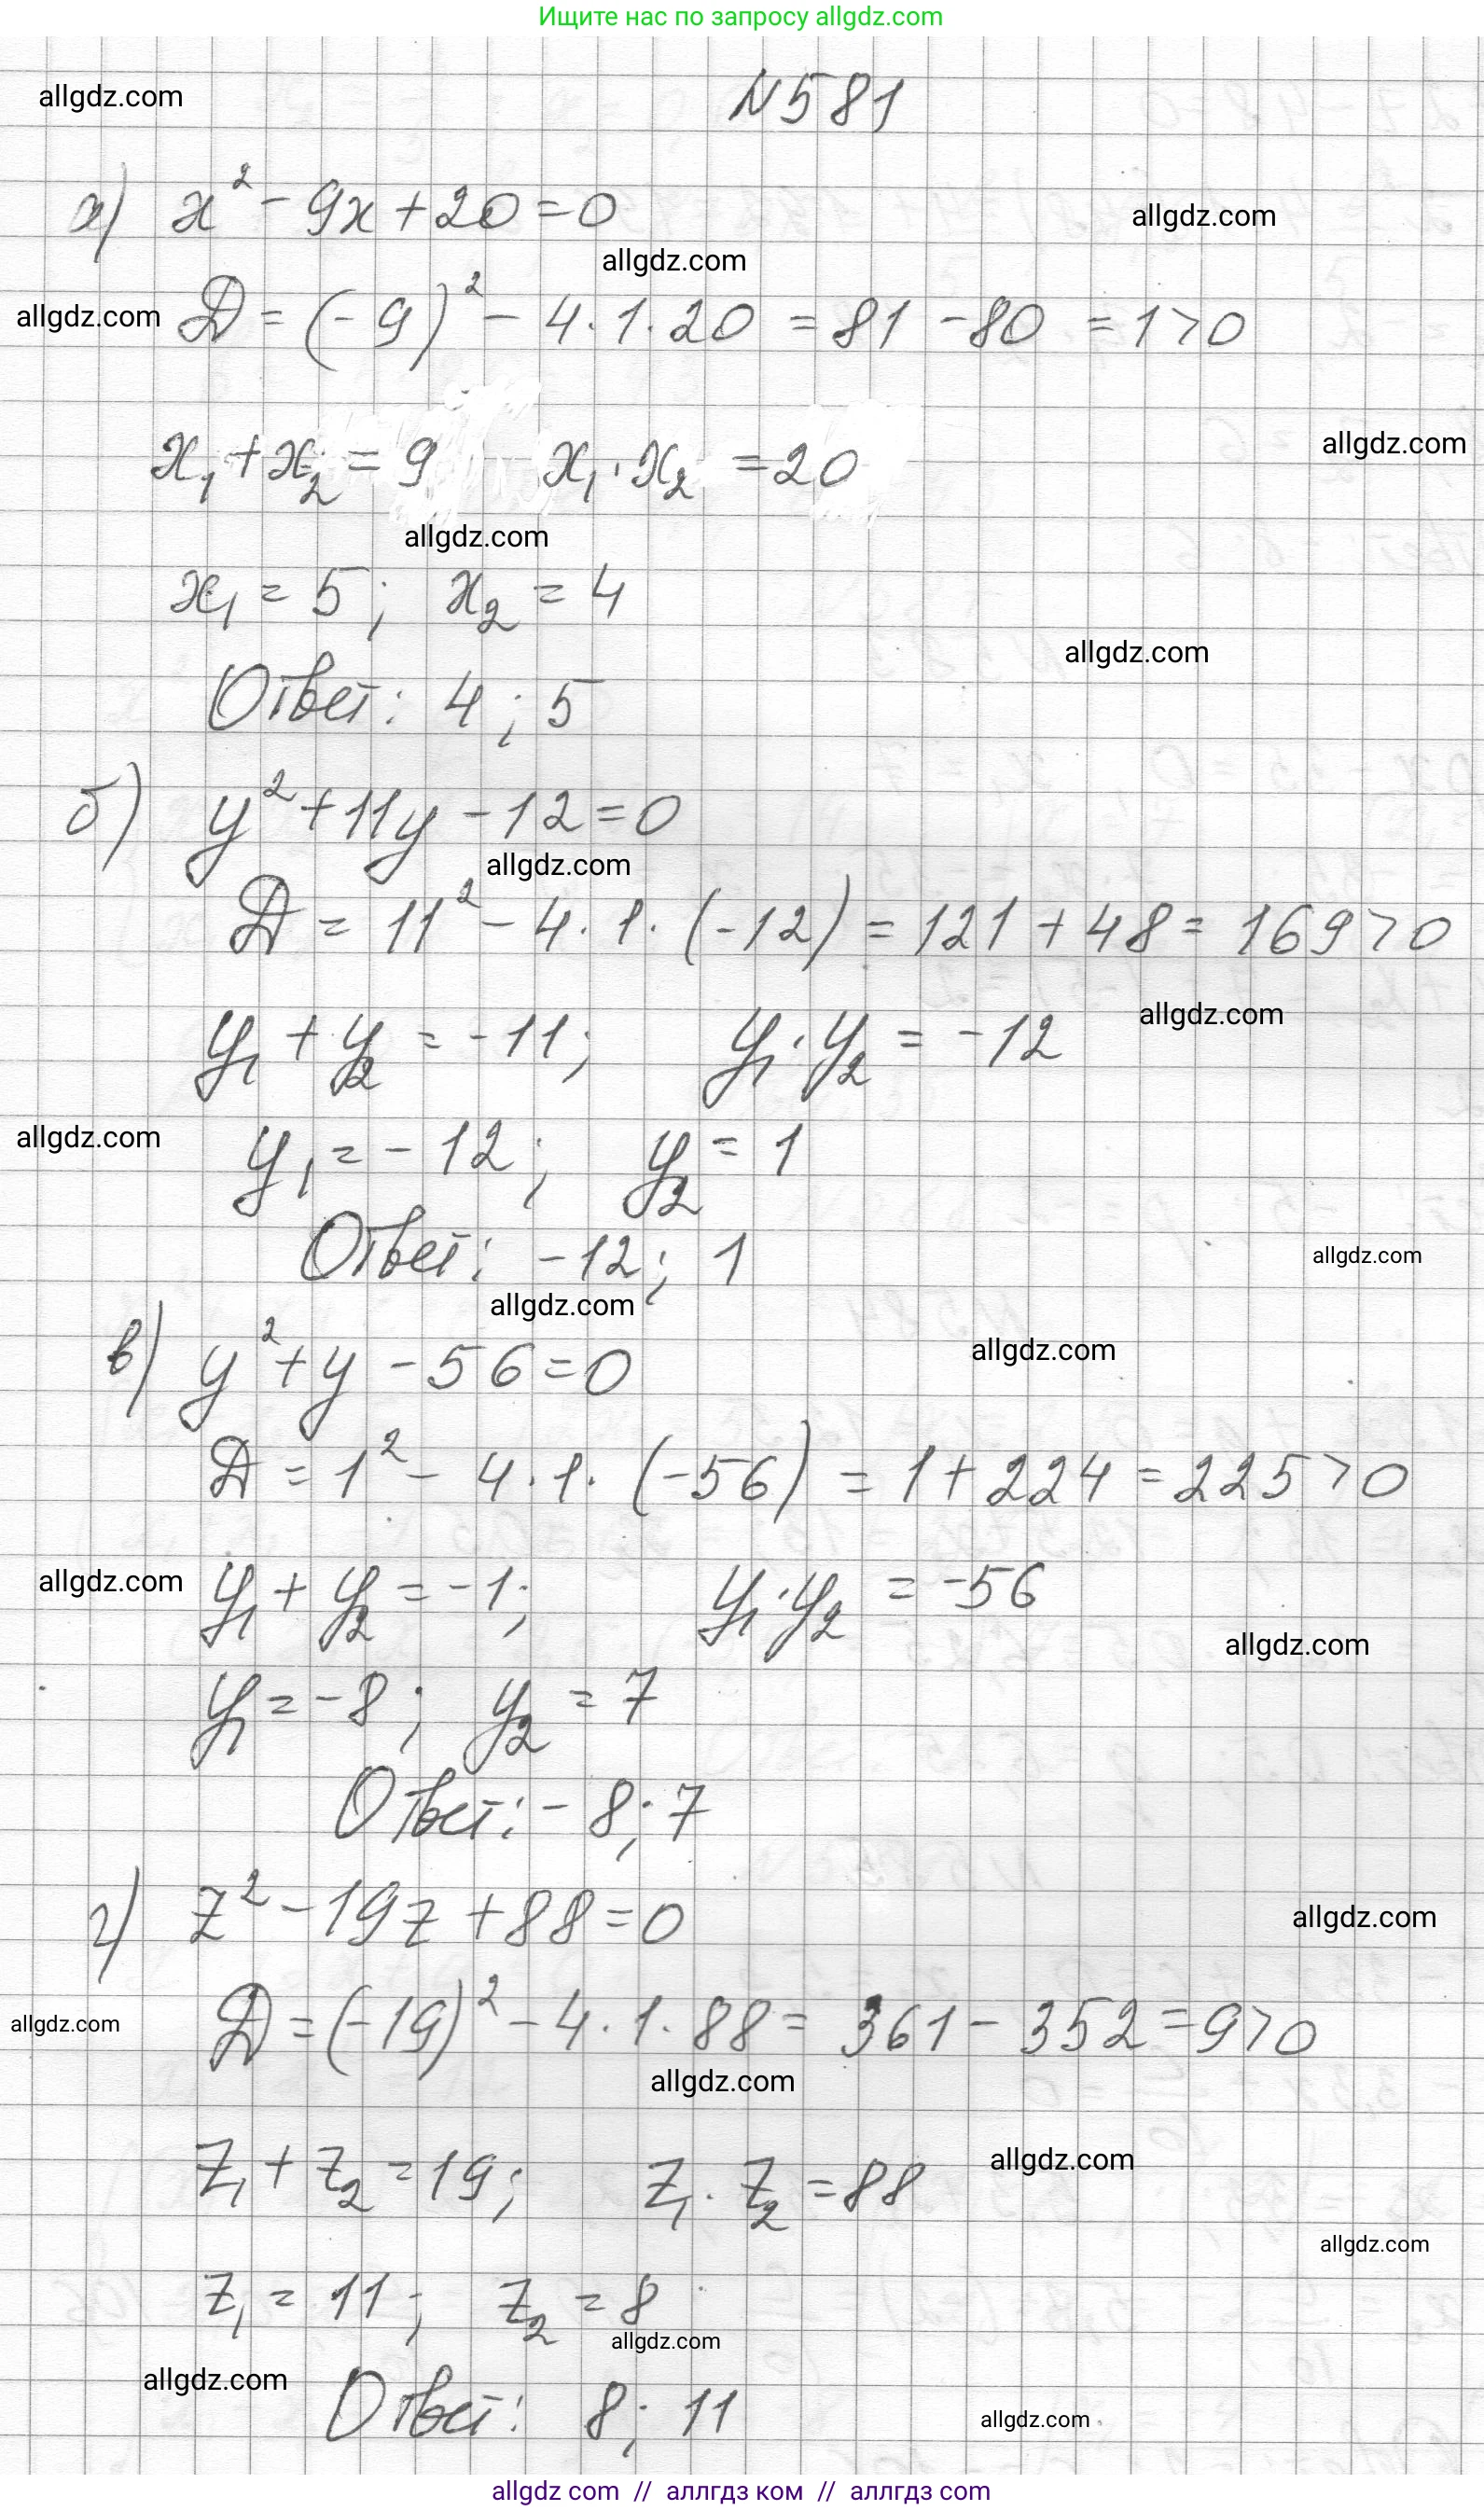 Ищите нас по запросу allgdz.com
allgdz.com
N581
а) x² - 9x + 20 = 0
allgdz.com
allgdz.com
allgdz.com
D = (-9)² - 4·1·20 = 81 - 80 = 1 > 0
allgdz.com
x₁ + x₂ = 9 x₁·x₂ = 20
allgdz.com
x₁ = 5; x₂ = 4
allgdz.com
Ответ: 4; 5
б) y² + 11y - 12 = 0
allgdz.com
D = 11² - 4·1·(-12) = 121 + 48 = 169 > 0
allgdz.com
y₁ + y₂ = -11; y₁·y₂ = -12
allgdz.com
y₁ = -12; y₂ = 1
Ответ: -12; 1
allgdz.com
allgdz.com
allgdz.com
в) y² + y - 56 = 0
D = 1² - 4·1·(-56) = 1 + 224 = 225 > 0
allgdz.com
y₁ + y₂ = -1; y₁·y₂ = -56
allgdz.com
y₁ = -8; y₂ = 7
Ответ: -8; 7
г) z² - 19z + 88 = 0
allgdz.com
allgdz.com
D = (-19)² - 4·1·88 = 361 - 352 = 9 > 0
allgdz.com
z₁ + z₂ = 19; z₁·z₂ = 88
allgdz.com
allgdz.com
z₁ = 11; z₂ = 8
allgdz.com
allgdz.com
Ответ: 8; 11
allgdz.com
allgdz com // аллгдз ком // аллгдз com